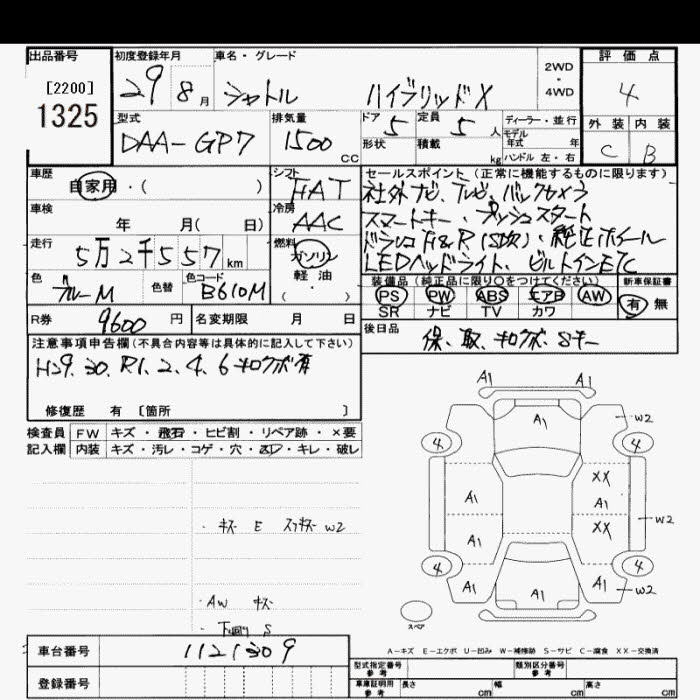 出品番号 初度登録年月 車名・グレード 2WD・4WD 評価点
[2200] 29 8月 シャトル ハイブリッドX 4
1325
型式 排気量 ドア 定員 ディーラー・並行 外装 内装
DAA-GP7 1500CC 5 5人 モデル年式 年
形状 積載 kg ハンドル 左・右 C B
車歴 シフト セールスポイント(正常に機能するものに限ります)
自家用・( ) FAT 社外ナビ、テレビ、バックカメラ
車検 冷房 スマートキー・プッシュスタート
年 月( 日) AAC ドラレコF&R(社外)・純正ホイール
走行 燃料 LEDヘッドライト、ビルトインETC
5万2千557km ガソリン
軽油
・( )
色 ブルーM 色替 色コード B610M
装備品(純正品に限り○をつけてください) 新車保証書
PS PW ABS エアB AW 有 無
SR ナビ TV カワ
R券 9600円 名変期限 月 日
後日品 保、取、キロクボ、Sキー
注意事項申告欄(不具合内容等は具体的に記入して下さい)
H29.30.R1.2.4.6キロクボ有
修復歴 有 [箇所 ]
検査員 FW キズ・飛石・ヒビ割・リペア跡・×要
記入欄 内装 キズ・汚レ・コゲ・穴・スレ・キレ・破レ
A1 A1
A1 W2
4 4
XX
A1 A1
XX W2
A1
4 4
A1 A1 A1 W2
スペア
・キズ E スリキズ W2
・AW キズ
・下廻り S
A-キズ E-エクボ U-凹み W-補修跡 S-サビ C-腐食 XX-交換済
車台番号 1121309
登録番号
型式指定番号 参考 類別区分番号 参考
車庫証明用 参考 長さ cm 幅 cm 高さ cm